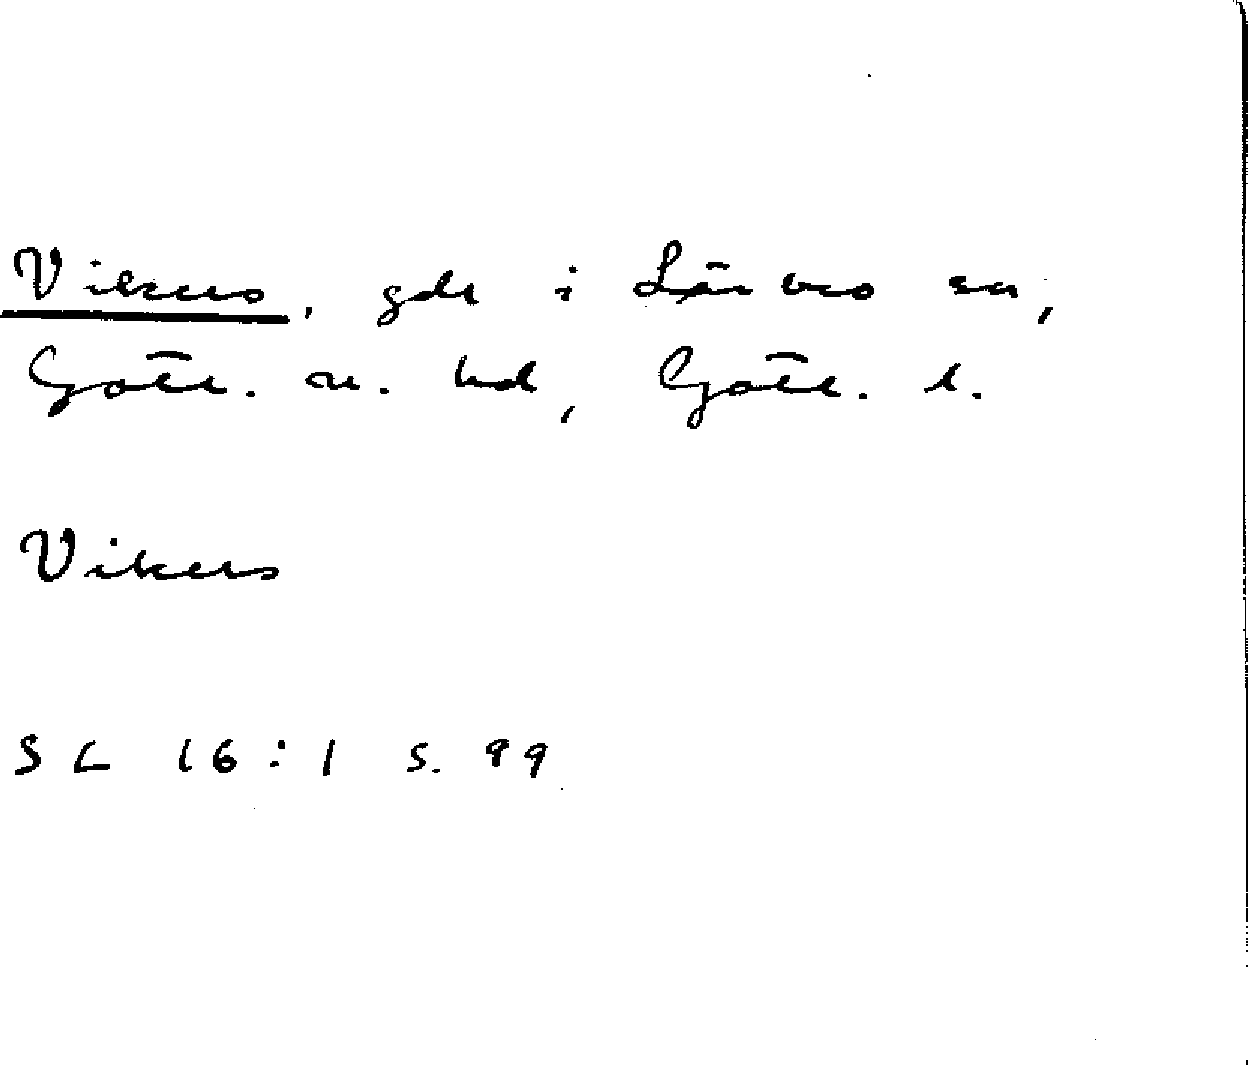 Vikers, gde i Lärbro sn,
Gotl. n. hd, Gotl. l.
Vikers
SL 16:1 s. 99